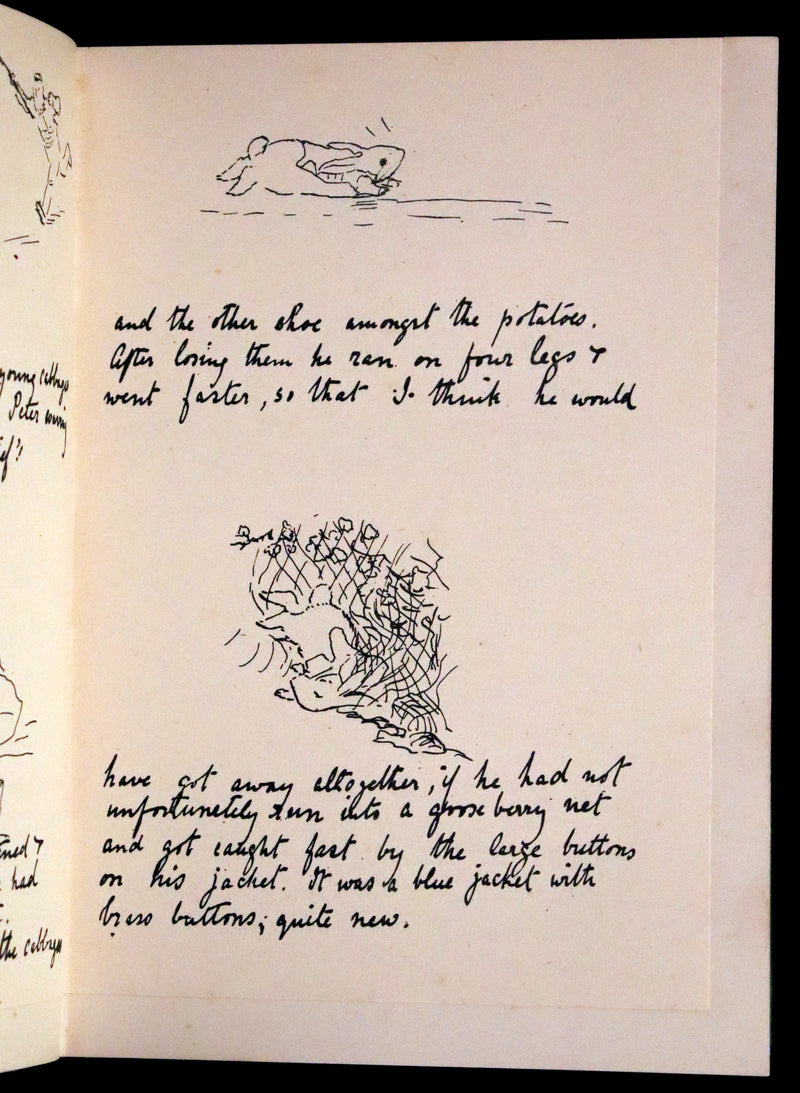 young cabbage
Peter
and the other shoe amongst the potatoes.
After losing them he ran on four legs &
went faster, so that I think he would
have got away altogether, if he had not
unfortunately run into a gooseberry net
and got caught fast by the large buttons
on his jacket. It was a blue jacket with
brass buttons; quite new.
had
the cabbages